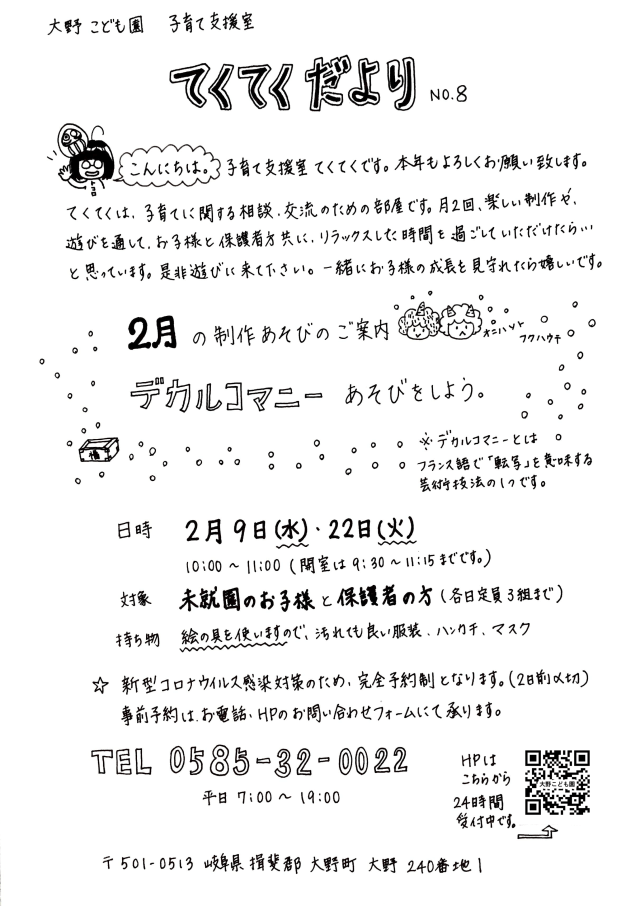 大野こども園 子育て支援室
てくてくだより NO.8
こんにちは。子育て支援室てくてくです。本年もよろしくお願い致します。
トコロ
てくてくは、子育てに関する相談、交流のための部屋です。月2回、楽しい制作や、
遊びを通して、お子様と保護者方共に、リラックスした時間を過ごしていただけたらいい
と思っています。是非遊びに来て下さい。一緒にお子様の成長を見守れたら嬉しいです。
2月の制作あそびのご案内
オニハソト
フクハウチ
デカルコマニーあそびをしよう。
福
※デカルコマニーとは
フランス語で「転写」を意味する
芸術技法の1つです。
日時 2月9日(水)・22日(火)
10:00〜11:00(開室は9:30〜11:15までです。)
対象 未就園のお子様と保護者の方(各日定員3組まで)
持ち物 絵の具を使いますので、汚れても良い服装、ハンカチ、マスク
☆ 新型コロナウイルス感染対策のため、完全予約制となります。(2日前〆切)
事前予約は、お電話、HPのお問い合わせフォームにて承ります。
TEL 0585-32-0022
平日 7:00〜19:00
HPは
こちらから
24時間
受付中です。
大野こども園
〒501-0513 岐阜県 揖斐郡 大野町 大野 240番地1